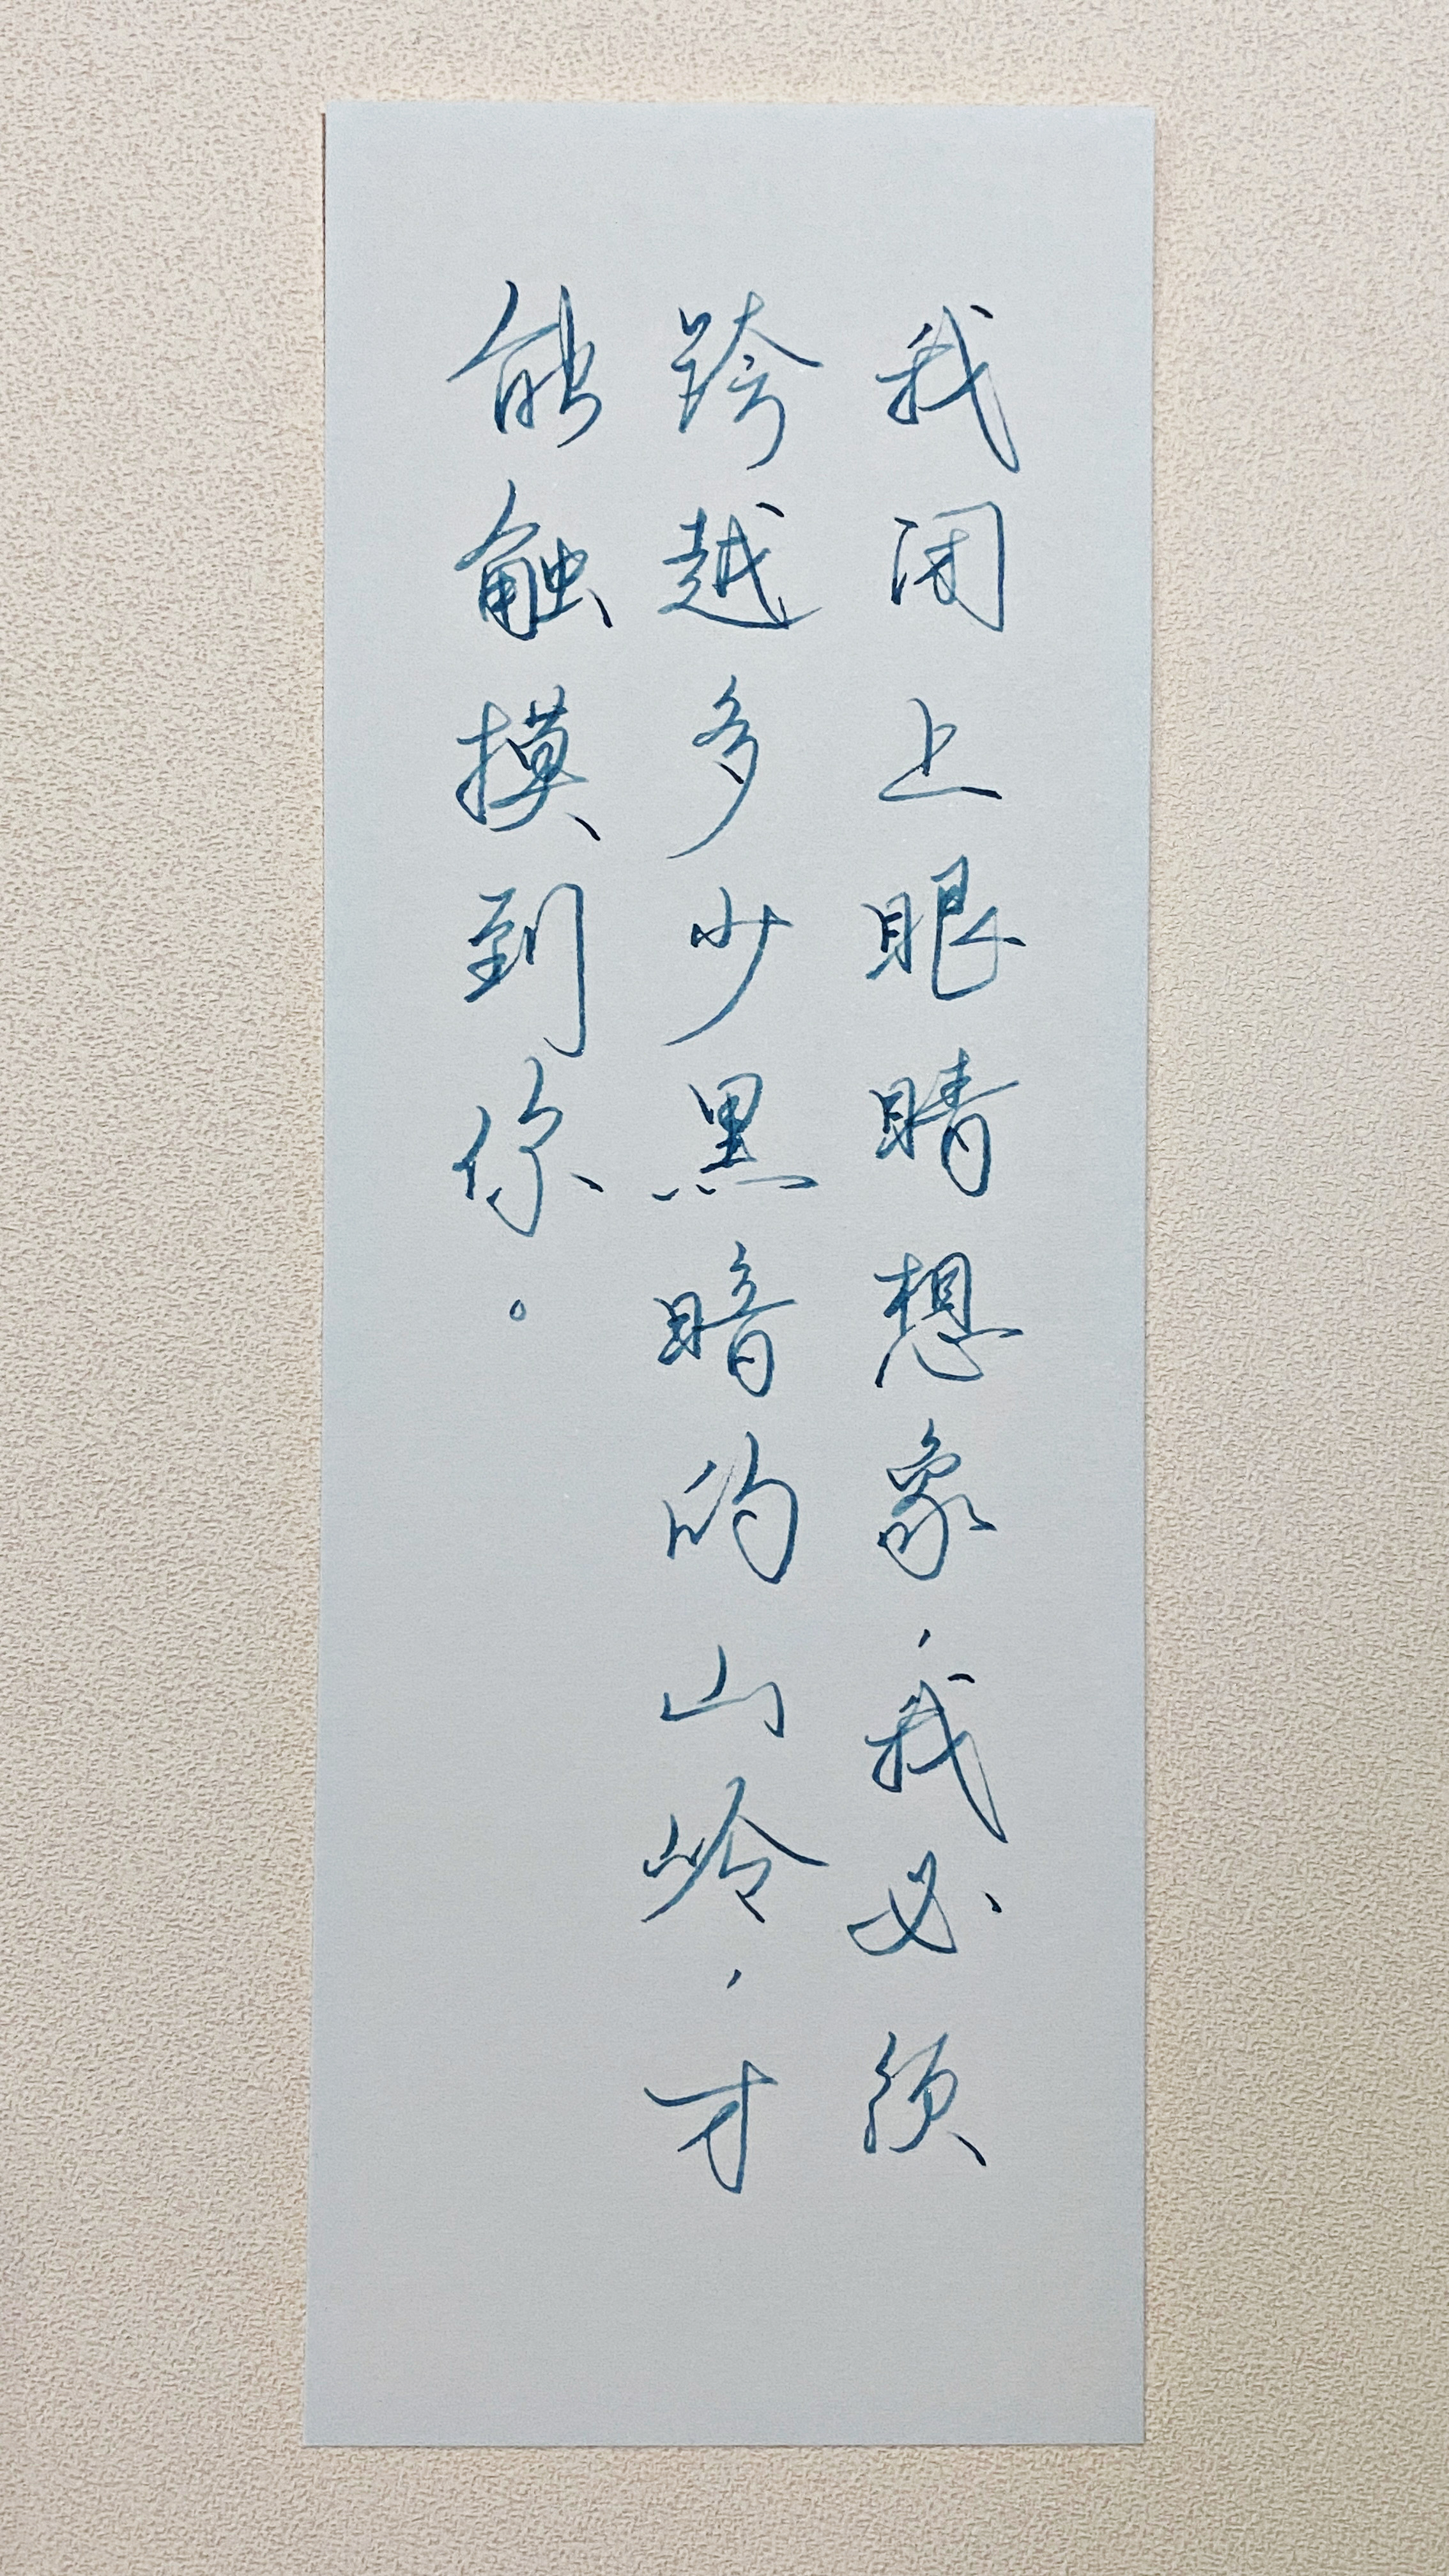 我闭上眼睛想象，我必须
跨越多少黑暗的山岭，才
能触摸到你。